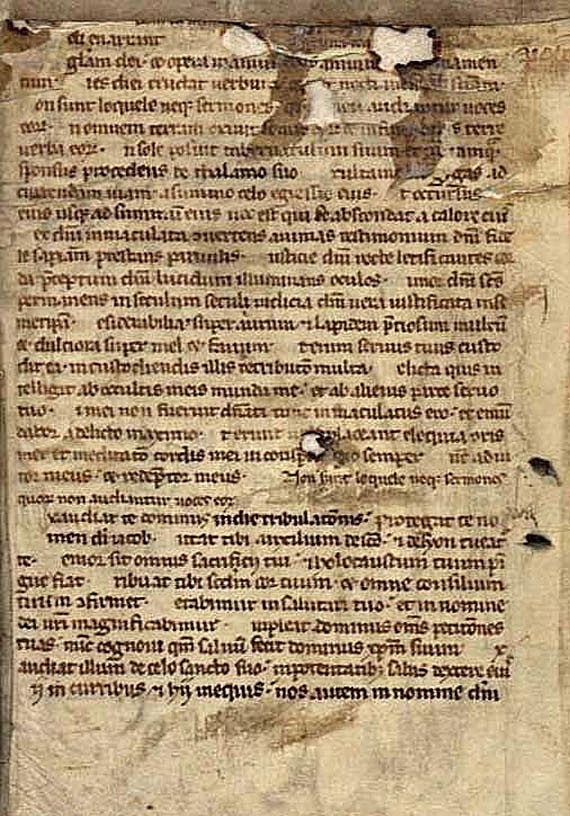 eli enarrant
glam dei· & opera manuum
tuu· ies diei eructat verbum
on sunt loquele neq; sermones audiantur uoces
eor· n omnem terram exiuit sonus eor & in fines terre
uerba eor· n sole posuit tabernaculum suum et tanq
sponsus procedens de thalamo suo xultauit gigas ad
currendam uiam· a summo celo egressio eius· t occursus
eius usq; ad summū eius nec est qui se abscondat a calore eiꝰ
ex dñi inmaculata ꝯuertens animas testimonium dñi fide
le sapiam prestans paruulis· usticie dñi recte letificantes cor
da p̄ceptum dñi lucidum illuminans oculos· imor dñi sc̄s
permanens in seculum seculi iudicia dñi uera iustificata in se
metipa· esiderabilia super aurum & lapidem p̄ciosum multū
& dulciora super mel & fauum· tenim seruus tuus custo
dit ea in custodiendis illis retributio multa· elicta quis in
telligit ab occultis meis munda me· et ab alienis parce seruo
tuo· i mei non fuerint dn̄ati tunc inmaculatus ero· et emū
dabor a delicto maximo· t erunt ut ꝯplaceant eloquia oris
mei et meditatio cordis mei in conspectu tuo semper ne adiu
tor meus· & redēptor meus· Non sunt loquele neq; sermones
quor non audiantur uoces eor
xaudiat te dominus in die tribulatōnis· protegat te no
men di iacob· ittat tibi auxilium de sco· & de syon tueat
te· emor sit omnis sacrificii tui· & holocaustum tuum pi
gue fiat· ribuat tibi scdm cor tuum· & omne consilium
tuum ꝯfirmet· etabimur in salutari tuo· et in nomine
dei nri magnificabimur· mpleat dominus oms petitōnes
tuas· nunc cognoui qm saluū fecit dominus xpm suum x
audiet illum de celo sancto suo· in potentatib; salus dextere eiꝰ
ij in curribus & hij in equis· nos autem in nomine dñi